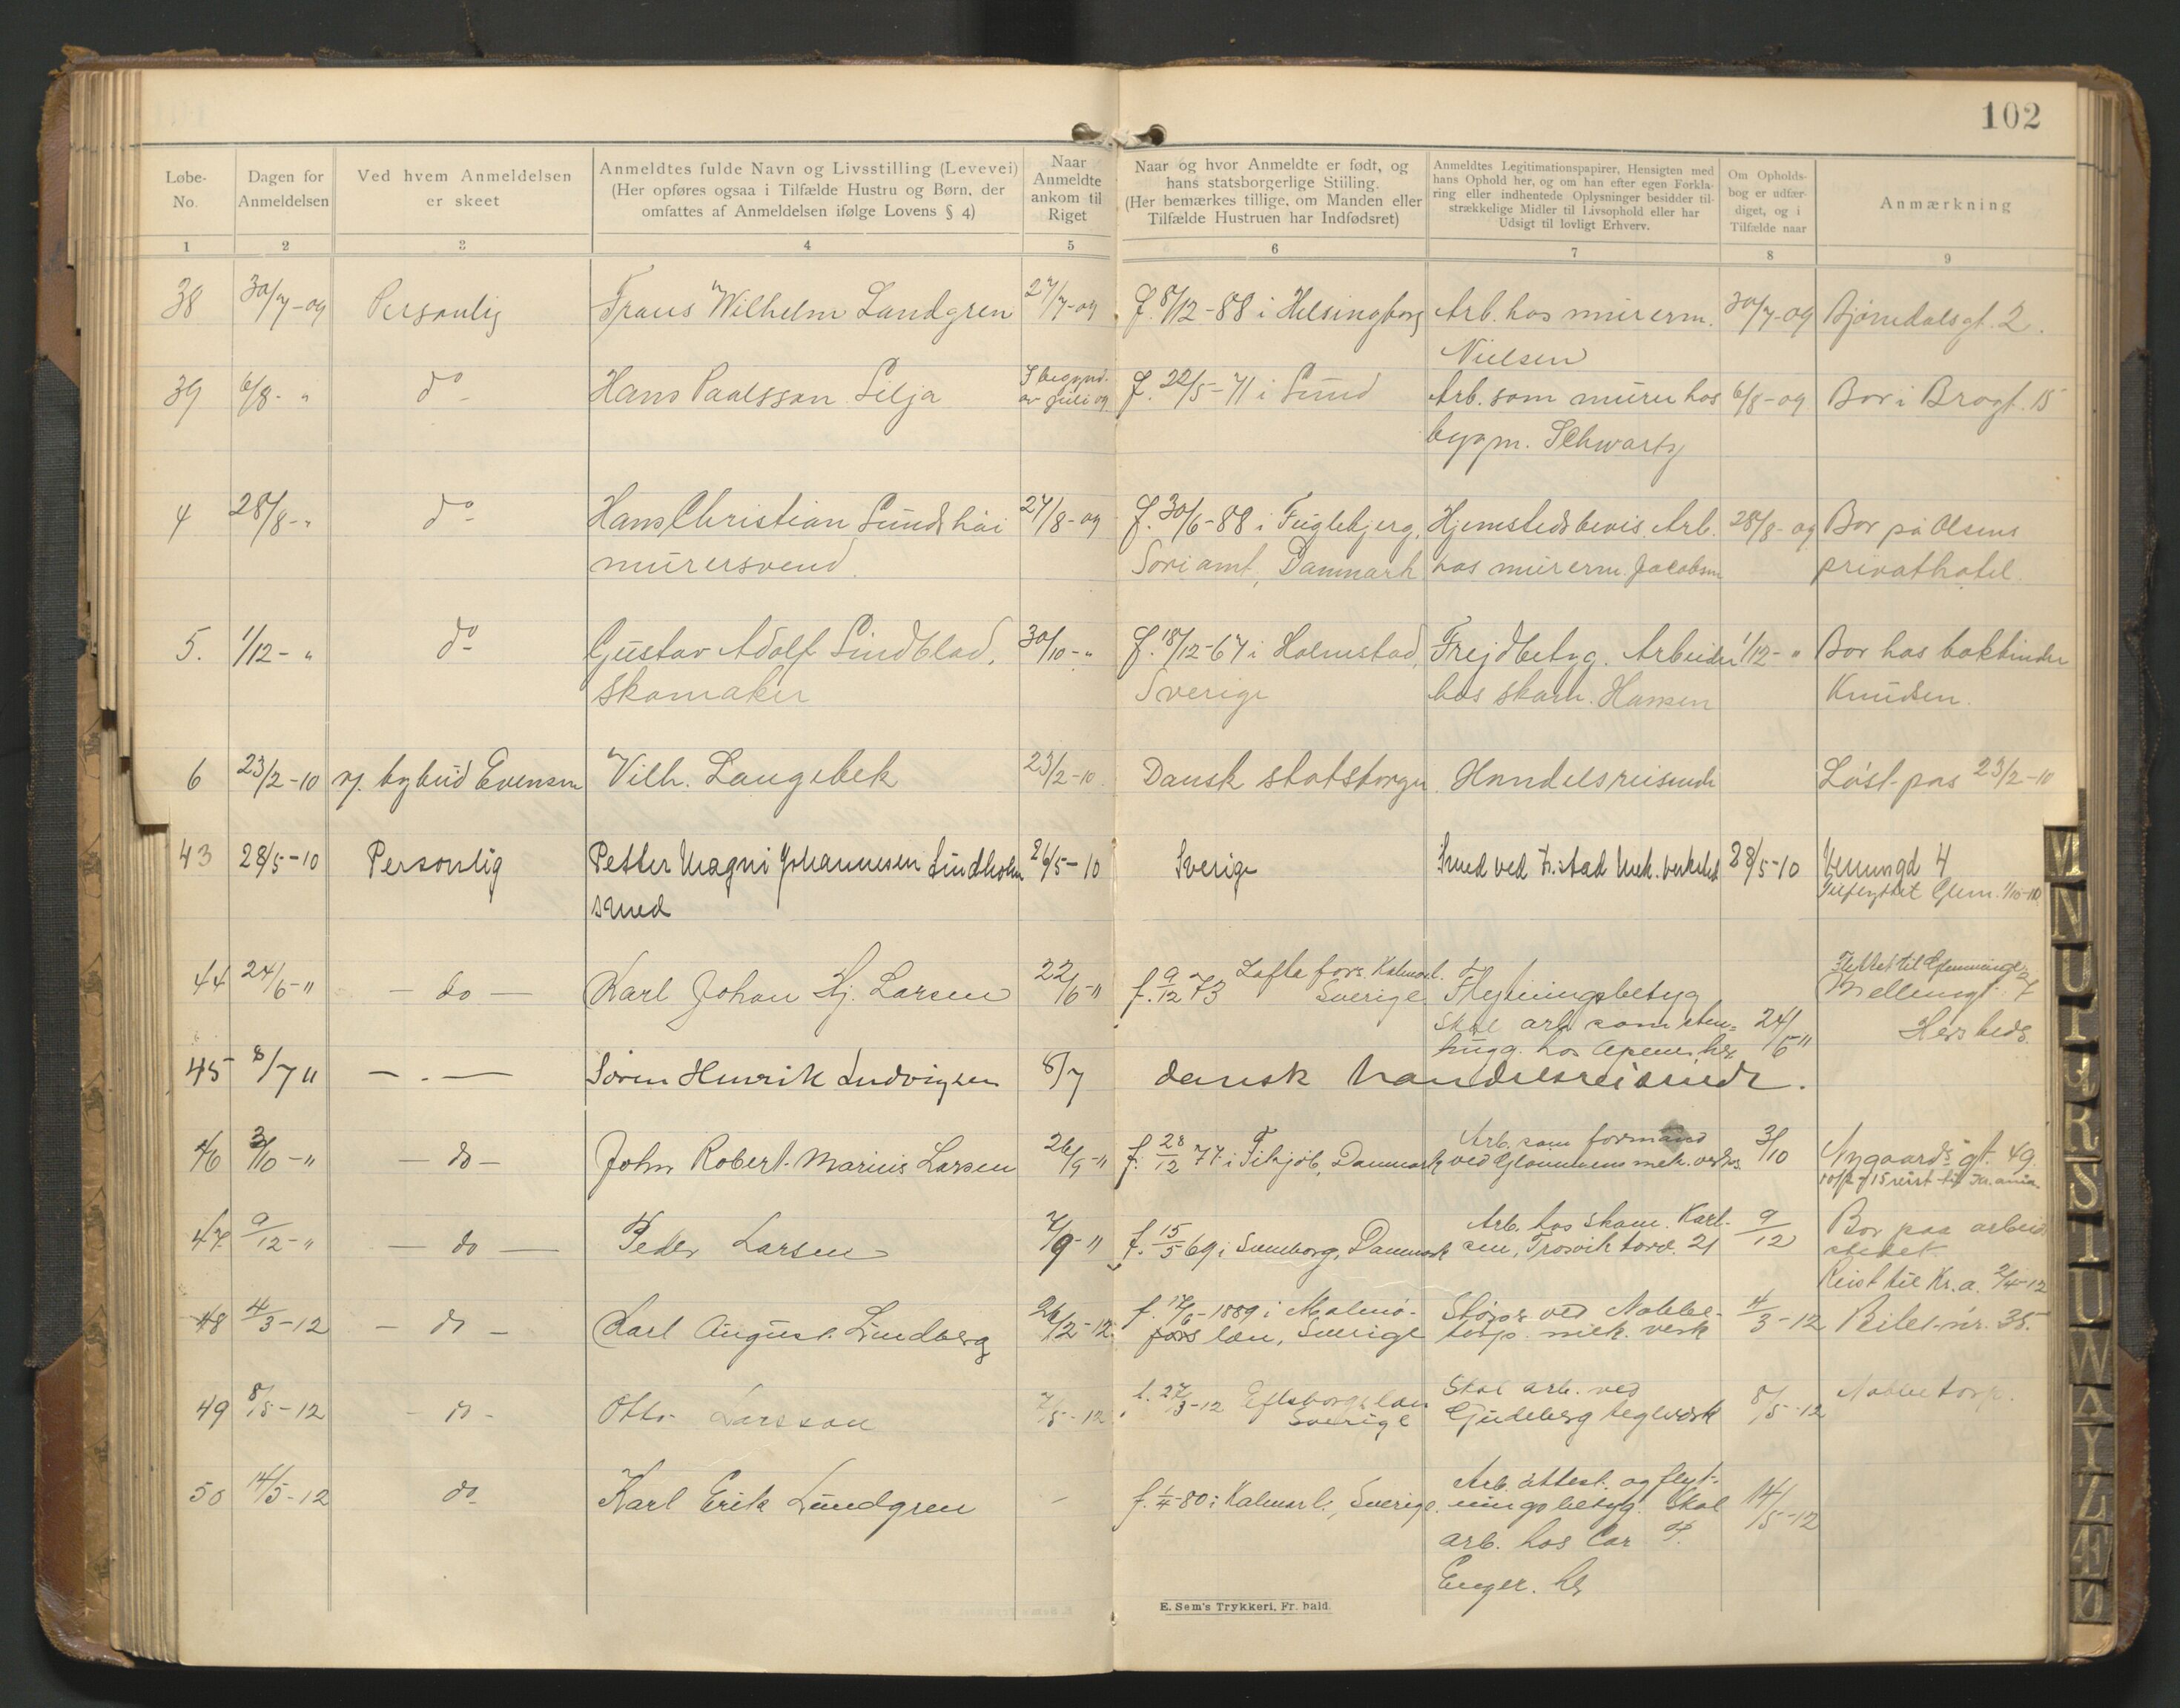 102
Løbe-
No.
Dagen for
Anmeldelsen
Ved hvem Anmeldelsen
er skeet
Anmeldtes fulde Navn og Livsstilling (Levevei)
(Her opføres ogsaa i Tilfælde Hustru og Børn, der
omfattes af Anmeldelsen ifølge Lovens § 4)
Naar
Anmeldte
ankom til
Riget
Naar og hvor Anmeldte er født, og
hans statsborgerlige Stilling.
(Her bemærkes tillige, om Manden eller
Tilfælde Hustruen har Indfødsret)
Anmeldtes Legitimationspapirer, Hensigten med
hans Ophold her, og om han efter egen Forkla-
ring eller indhentede Oplysninger besidder til-
strækkelige Midler til Livsophold eller har
Udsigt til lovligt Erhverv.
Om Opholds-
bog er udfær-
diget, og i
Tilfælde naar
Anmærkning
1 2 3 4 5 6 7 8 9
38 30/7-09 Personlig Frans Wilhelm Landgren 27/7-09 f. 8/12-88 i Helsingborg Arb. hos murerm. 30/7-09 Bjørndalsgt. 2.
Nielsen
39 6/8- " do Hans Paalsson Lilja I begynd. f. 22/5-71 i Lund Arb. som murer hos 6/8-09 Bor i Brogt. 15
av juli 09
bygm. Schwartz
4 28/8- " do Hans Christian Lundshöi 27/8-09 f. 30/6-88 i Fuglebjerg, Hjemstedsbevis. Arb. 28/8-09 Bor på Olsens
murersvend. Sorö amt, Danmark hos murerm. Jacobsen privathotel.
5. 1/12- " do Gustav Adolf Lindblad, 30/10- " f. 18/12-67 i Halmstad, Frejdbetyg. Arbeider 1/12- " Bor hos bokbinder
skomaker Sverige hos skom. Hansen Knudsen.
6 23/2-10 v. bybud Evensen Vilh. Langebek 23/2-10. Dansk statsborger. Handelsreisende Løst. pas 23/2-10
43 28/5-10 Personlig Petter Magni Johannesen Lindholm 26/5-10 Sverige Smed ved Fr.stad Mek. verksted 28/5-10 4
smed Glem. 1/10-10
44 24/6- " - do - Karl Johan Hj. Larsen 22/6- " f. 9/12 73 Lofta fors. Kalmarl. Flytningsbetyg
Sverige
Skal arb. som sten- 24/6 "
hugg. hos
45 8/7 " - . - Søren Henrik Ludvigsen 8/7 dansk handelsreisende.
46 3/10- " - do - John Robert Marius Larsen 26/9- " f. 28/12 77 i Tikjöb, Danmark Arb. som formand 3/10 Nygaards gt. 49.
ved Glommens mek. verks. reist til Kr.ania.
47. 9/12- " - do - Peder Larsen 7/9- " f. 15/5 69 i Svenborg, Danmark Arb. hos skom. Karl- 9/12 Bor paa arbeid
sen, Trosvik torv. 21 stedet
Reist til Kr.a. 2/4-12
48 4/3-12 - do - Karl August Lundberg 26/2-12. f. 17/6-1889 i Malmö- Støper ved Nabbe- 4/3-12 Bilet nr. 35.
fors len, Sverige torp. mek. verk
49 8/5-12 - do - Otto Larsson 7/5-12. f. 27/3-12 Elfsborgs lan Skal arb. ved 8/5-12 Nabbetorp.
Sverige Gudeberg teglverk
50 14/5-12 do Karl Erik Lundgren - f. 1/4-80 i Kalmar l., Sverige. Arb. attest. og flyt- 14/5-12
ningsbetyg. Skal
arb. hos Car
Enger.
E. Sem's Trykkeri, Fr. hald.
M
N
U
P
Q
R
S
T
U
W
A
Y
Z
Æ
Ø